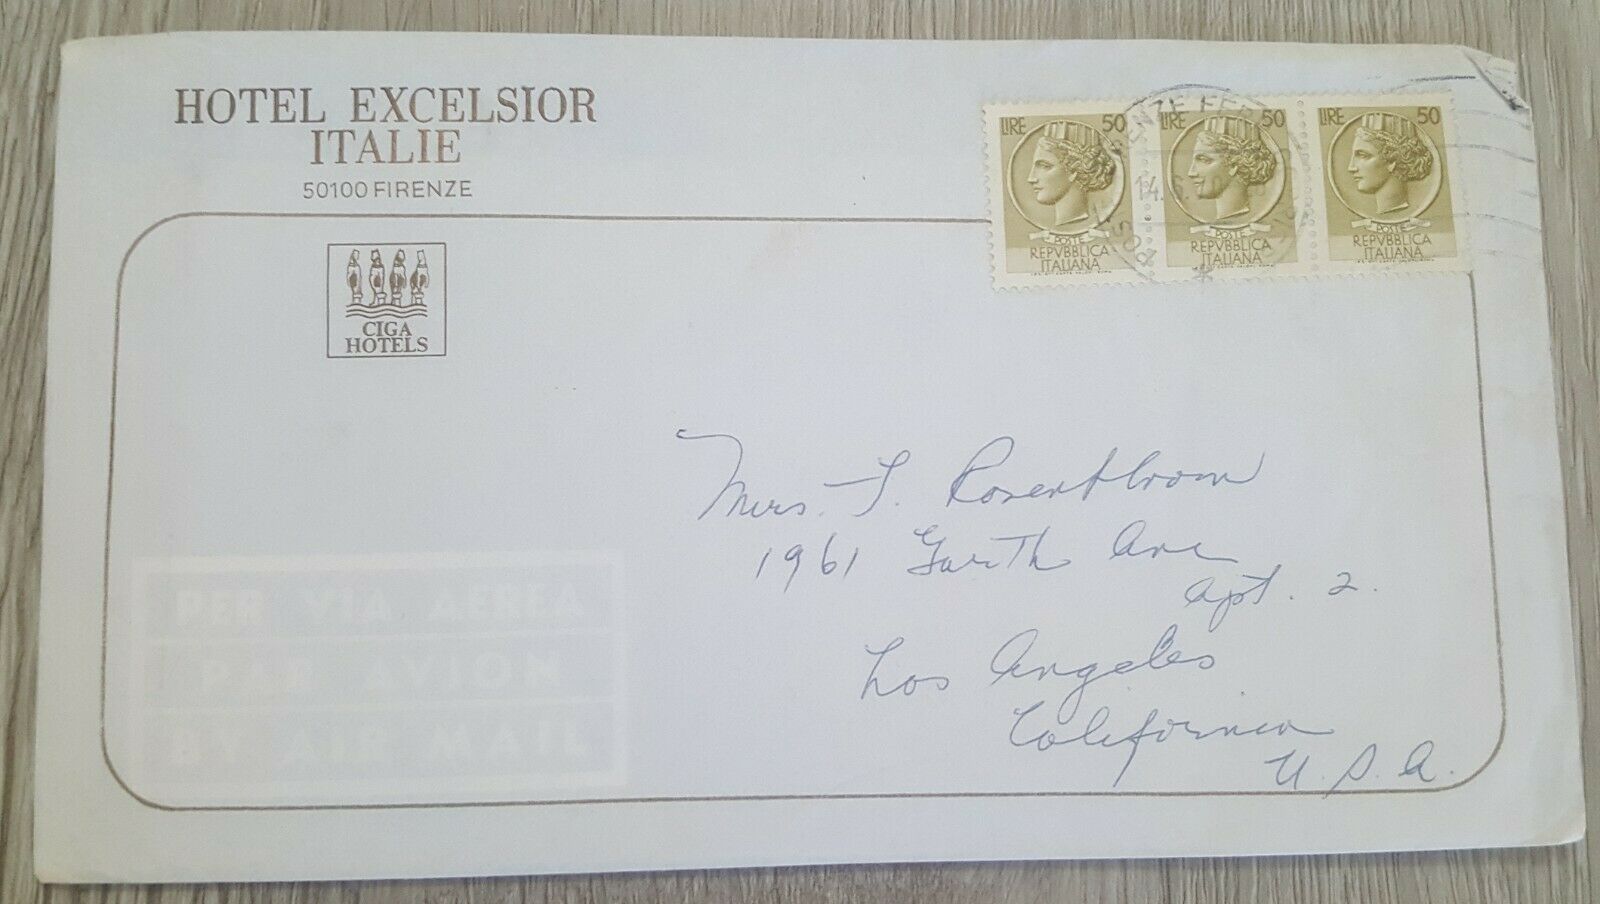 HOTEL EXCELSIOR
ITALIE
50100 FIRENZE
CIGA
HOTELS
LIRE 50
POSTE
REPVBBLICA
ITALIANA
LIRE 50
POSTE
REPVBBLICA
ITALIANA
LIRE 50
POSTE
REPVBBLICA
ITALIANA
14.6.
Mrs. T. Rosenthloom
1961 Garth Ave
Apt. 2.
Los Angeles
California
U.S.A.
PER VIA AEREA
PAR AVION
BY AIR MAIL